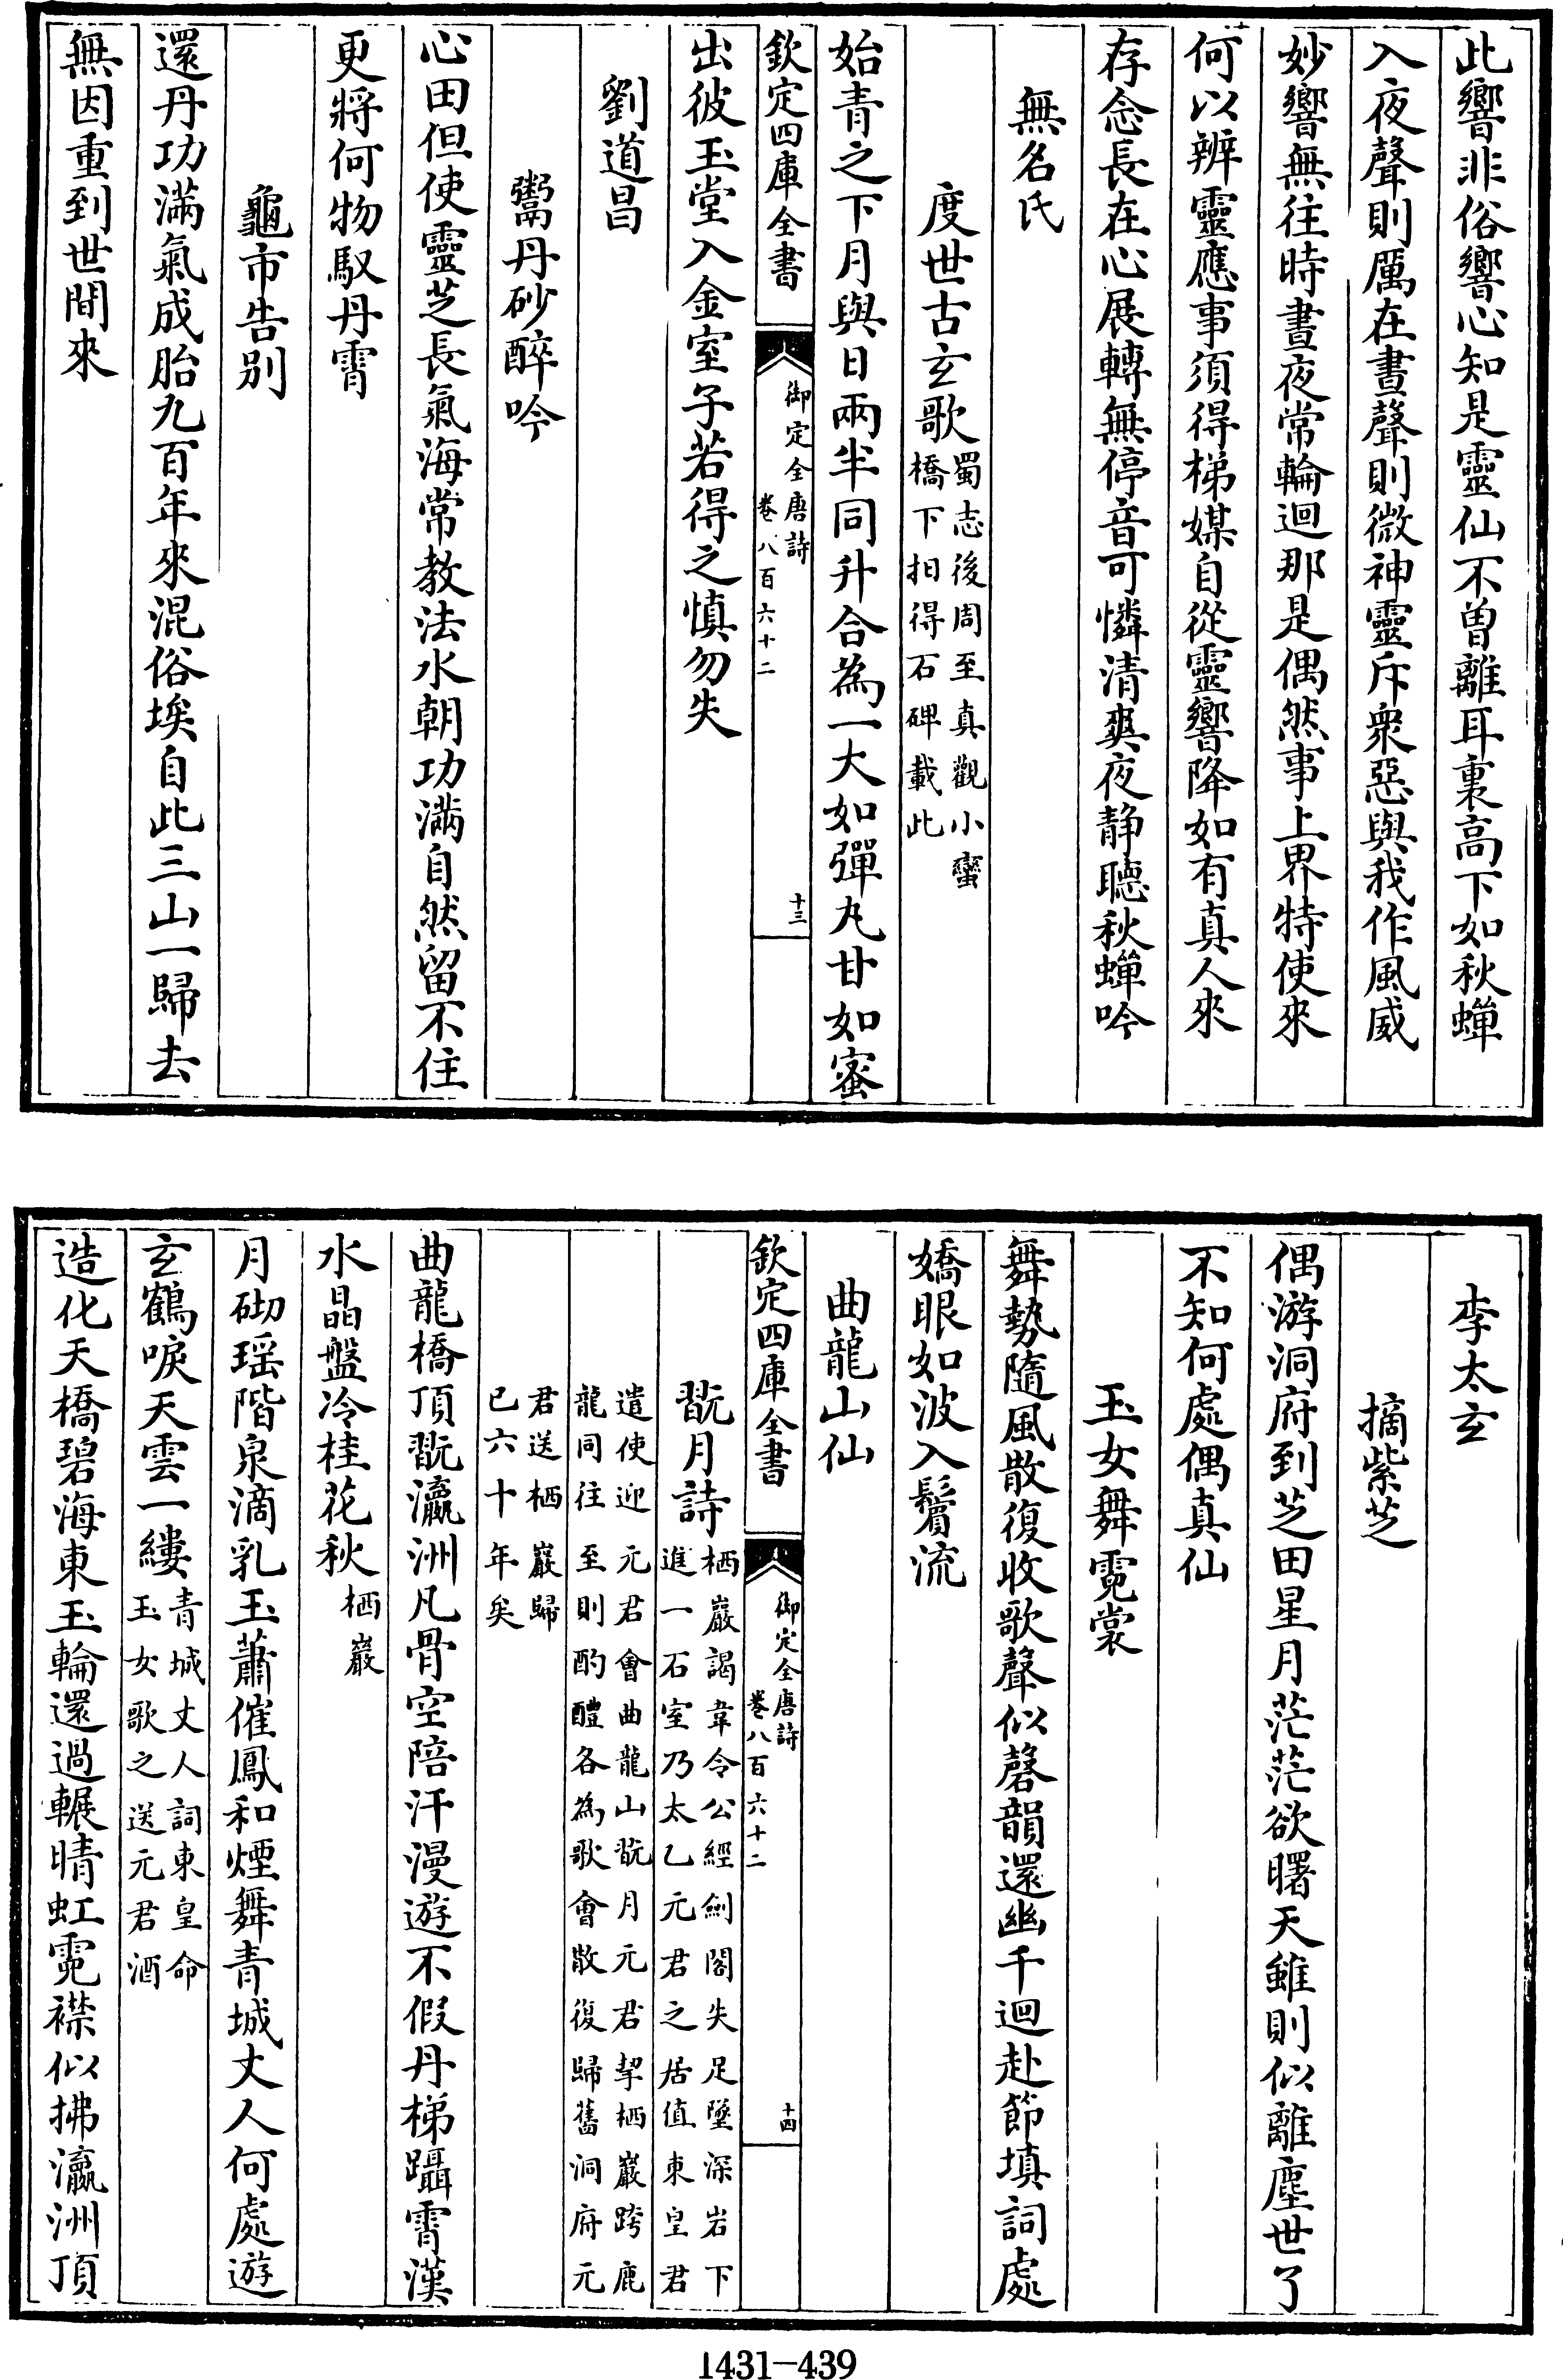 此響非俗響心知是靈仙不曽離耳裏高下如秋蟬
入夜聲則厲在晝聲則微神靈斥衆惡與我作風威
妙響無往時晝夜常輪迴那是偶然事上界特使來
何以辨靈應事須得梯媒自從靈響降如有真人來
存念長在心展轉無停音可憐清爽夜静聽秋蟬吟
無名氏
度世古玄歌蜀志後周至真觀小蠻
橋下掘得石碑載此
始青之下月與日兩半同升合為一大如彈丸甘如蜜
欽定四庫全書
御定全唐詩
卷八百六十二
十三
出彼玉堂入金室子若得之慎勿失
劉道昌
鬻丹砂醉吟
心田但使靈芝長氣海常教法水朝功滿自然留不住
更將何物馭丹霄
龜市告别
還丹功滿氣成胎九百年來混俗埃自此三山一歸去
無因重到世間來
李太玄
摘紫芝
偶游洞府到芝田星月茫茫欲曙天雖則似離塵世了
不知何處偶真仙
玉女舞霓裳
舞勢隨風散復收歌聲似磬韻還幽千迴赴節填詞處
嬌眼如波入鬢流
曲龍山仙
欽定四庫全書
御定全唐詩
卷八百六十二
十四
翫月詩栖巖謁韋令公經劍閣失足墜深岩下
進一石室乃太乙元君之居值東皇君
遣使迎元君會曲龍山翫月元君挈栖巖跨鹿
龍同往至則酌醴各為歌會散復歸舊洞府元
君送栖巖歸
已六十年矣
曲龍橋頂翫瀛洲凡骨空陪汗漫遊不假丹梯躡霄漢
水晶盤冷桂花秋栖巖
月砌瑶階泉滴乳玉蕭催鳳和煙舞青城丈人何處遊
玄鶴唳天雲一縷青城丈人詞東皇命
玉女歌之送元君酒
造化天橋碧海東玉輪還過輾晴虹霓襟似拂瀛洲頂
1431—439